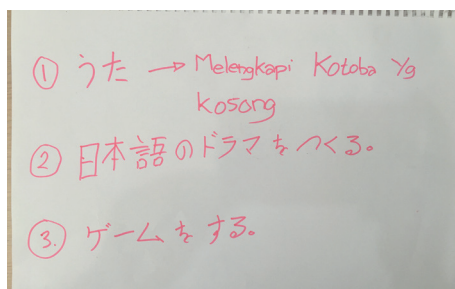 ① うた → Melengkapi Kotoba Yg
Kosong
② 日本語のドラマをつくる。
③. ゲームをする。